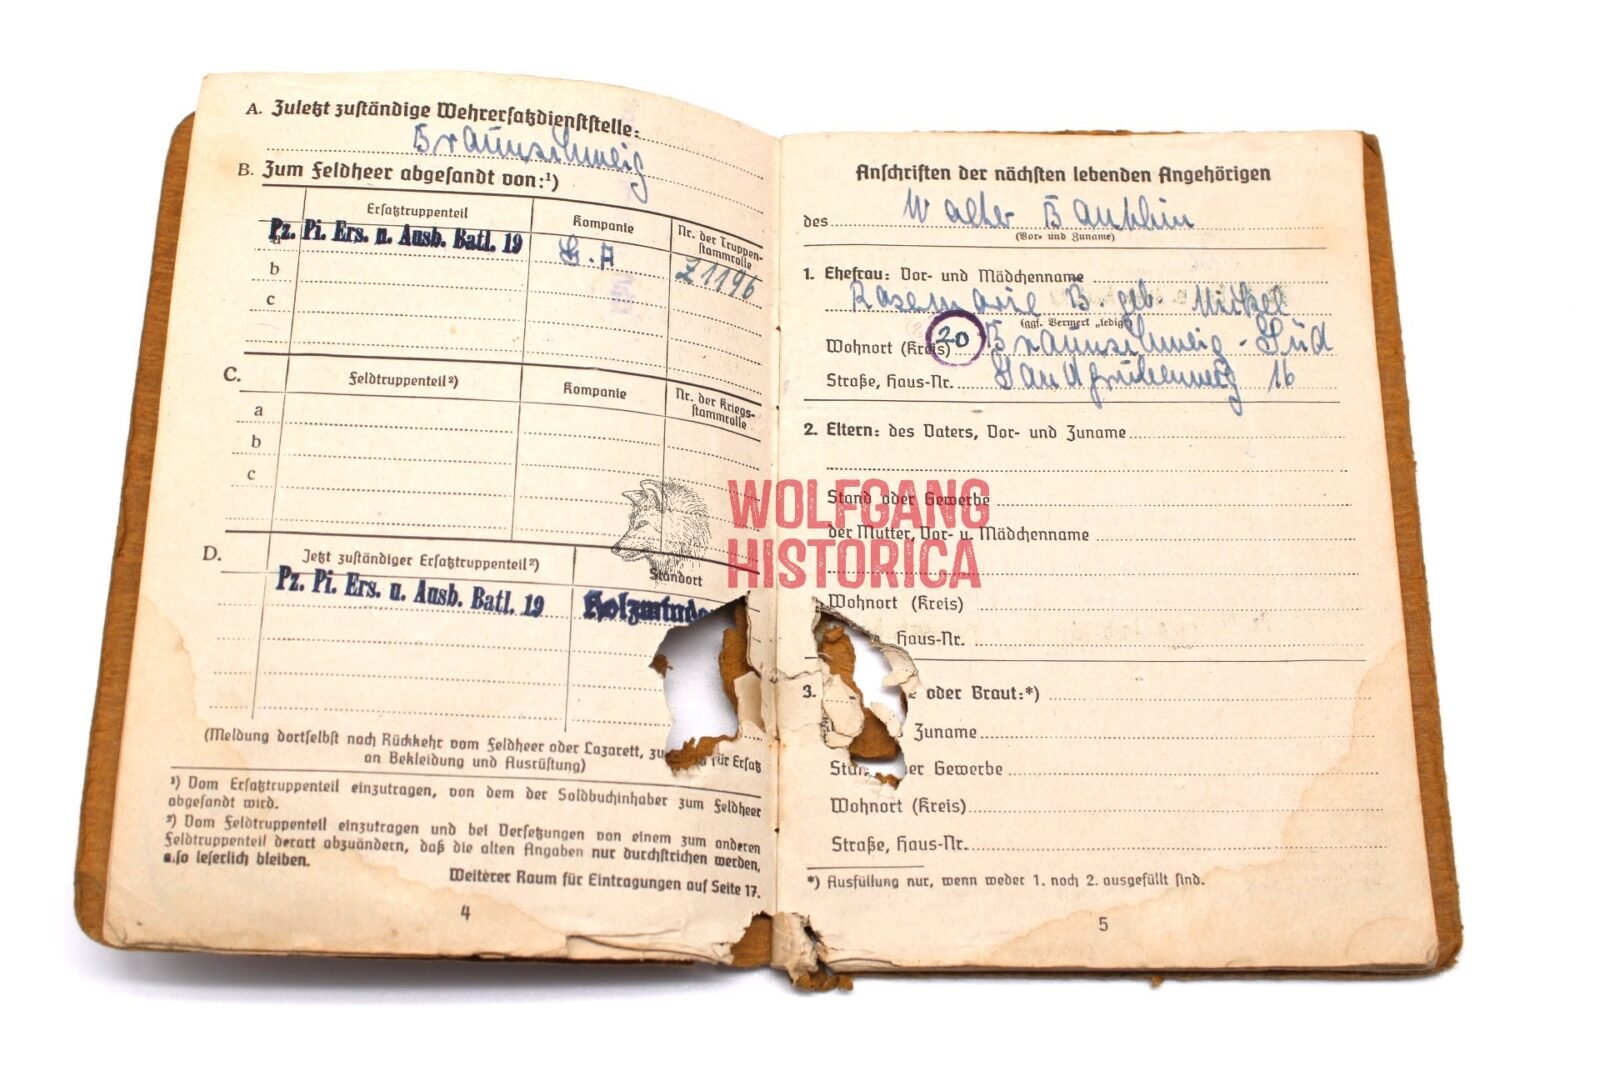 A. Zuletzt zuständige Wehrersatzdienststelle:
Braunschweig
B. Zum Feldheer abgesandt von:¹)
Ersatztruppenteil Kompanie Nr. der Truppen-
stammrolle
a Pz. Pi. Ers. u. Ausb. Batl. 19 G.A Z1196
b
c
C. Feldtruppenteil²) Kompanie Nr. der Kriegs-
stammrolle
a
b
c
D. Jetzt zuständiger Ersatztruppenteil²) Standort
Pz. Pi. Ers. u. Ausb. Batl. 19 Holzminde
(Meldung dortselbst nach Rückkehr vom Feldheer oder Lazarett, für Ersatz
an Bekleidung und Ausrüstung)
¹) Vom Ersatztruppenteil einzutragen, von dem der Soldbuchinhaber zum Feldheer
abgesandt wird.
²) Vom Feldtruppenteil einzutragen und bei Versetzungen von einem zum anderen
Feldtruppenteil derart abzuändern, daß die alten Angaben nur durchstrichen werden,
also leserlich bleiben.
Weiterer Raum für Eintragungen auf Seite 17.
4
Anschriften der nächsten lebenden Angehörigen
des Walter
(Vor- und Zuname)
1. Ehefrau: Vor- und Mädchenname
Rosemarie B. geb.
(ggf. Vermerk „ledig")
Wohnort (Kreis) 20 Braunschweig - Süd
Straße, Haus-Nr. Sandgrubenweg 16
2. Eltern: des Vaters, Vor- und Zuname
Stand oder Gewerbe
der Mutter, Vor- u. Mädchenname
Wohnort (Kreis)
Haus-Nr.
3. oder Braut:*)
Zuname
Gewerbe
Wohnort (Kreis)
Straße, Haus-Nr.
*) Ausfüllung nur, wenn weder 1. noch 2. ausgefüllt sind.
5
WOLFGANG
HISTORICA